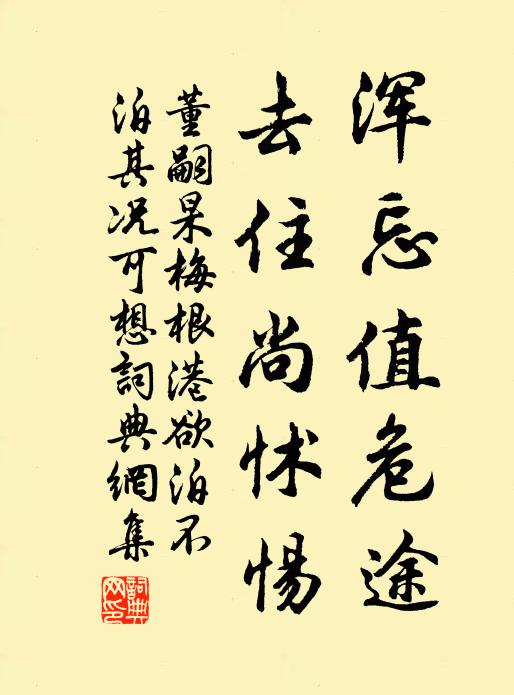 浑忘值危途
去住尚怵惕
董嗣杲梅根港欲泊不
泊其况可想詞典網集
詞典網印